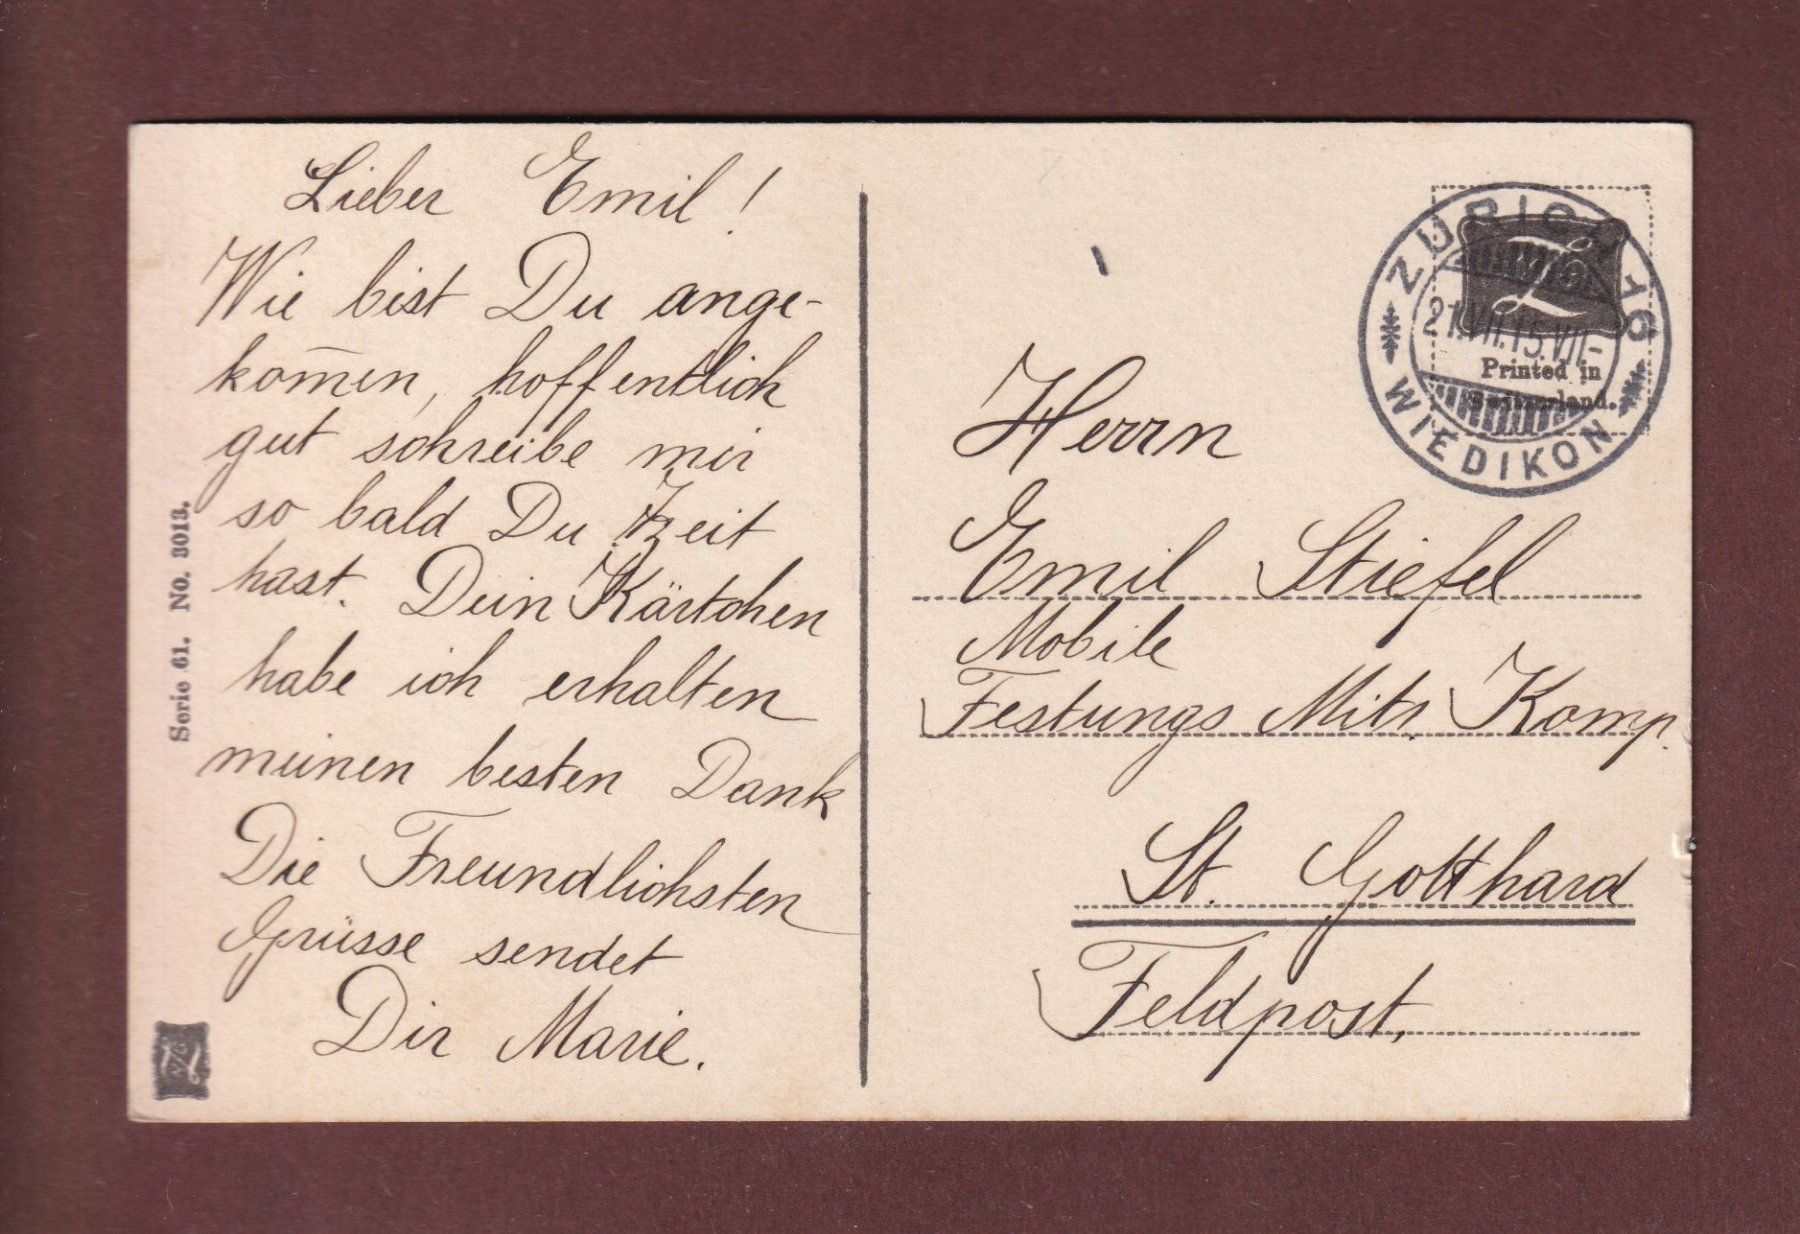 Lieber Emil!
Wie bist Du ange-
kom̄en, hoffentlich
gut schreibe mir
so bald Du Zeit
hast. Dein Kärtchen
habe ich erhalten
meinen besten Dank
Die Freundlichsten
Grüsse sendet
Dir Marie.
Serie 61. No. 3013.
ZÜRICH 16
21.VII.15.VII-
WIEDIKON
Printed in
Switzerland.
Herrn
Emil Stiefel
Mobile
Festungs Mitr. Komp.
St. Gotthard
Feldpost,